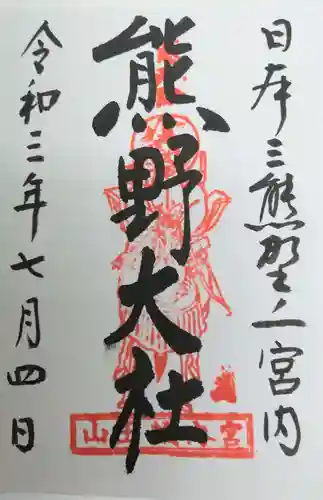 日本三熊野ノ一宮内
熊野大社
令和三年七月四日